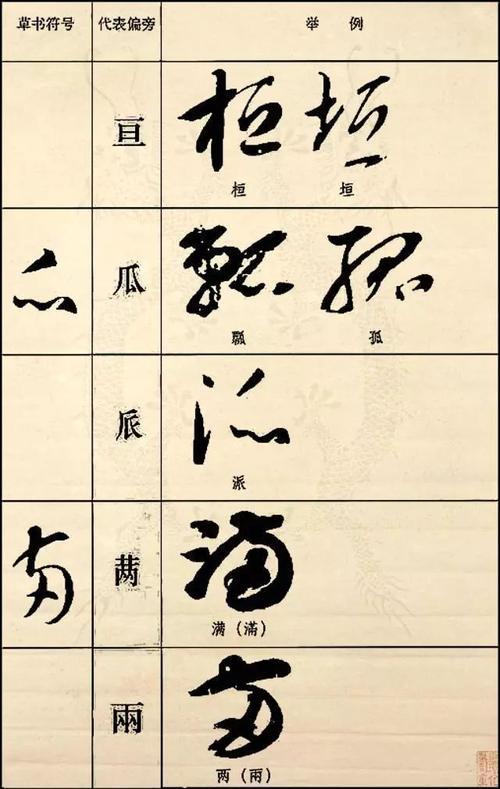 草书符号 代表偏旁 举例
亘
桓 垣
瓜
瓢 孤
𠂢
派
㒼
满（滿）
兩
两（兩）